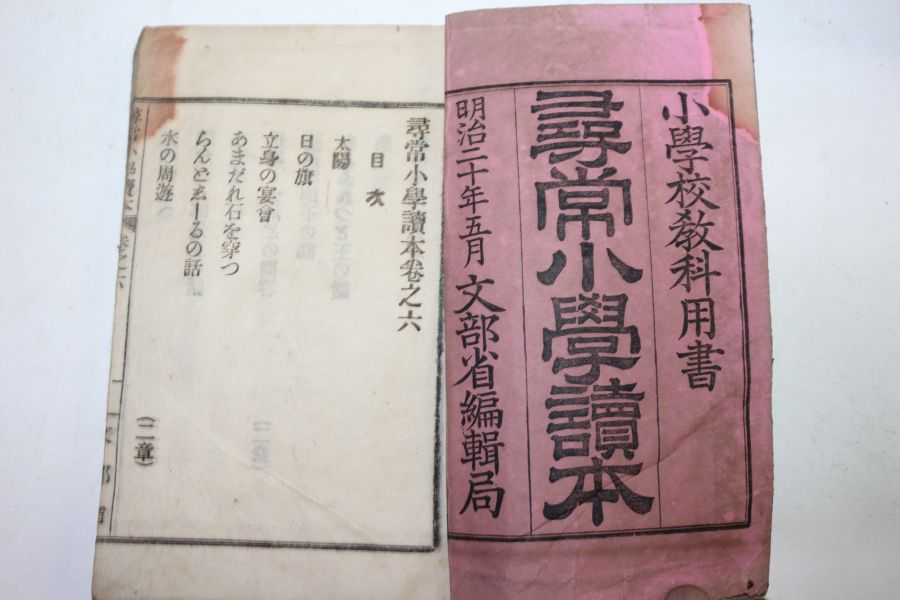 小學校敎科用書
尋常小學讀本
明治二十年五月 文部省編輯局
尋常小學讀本卷之六
目次
太陽
日の旗
立身の宴會
あまだれ石を穿つ
らんどゑーるの話
水の周遊 （二章）
尋常小學讀本 卷之六 一